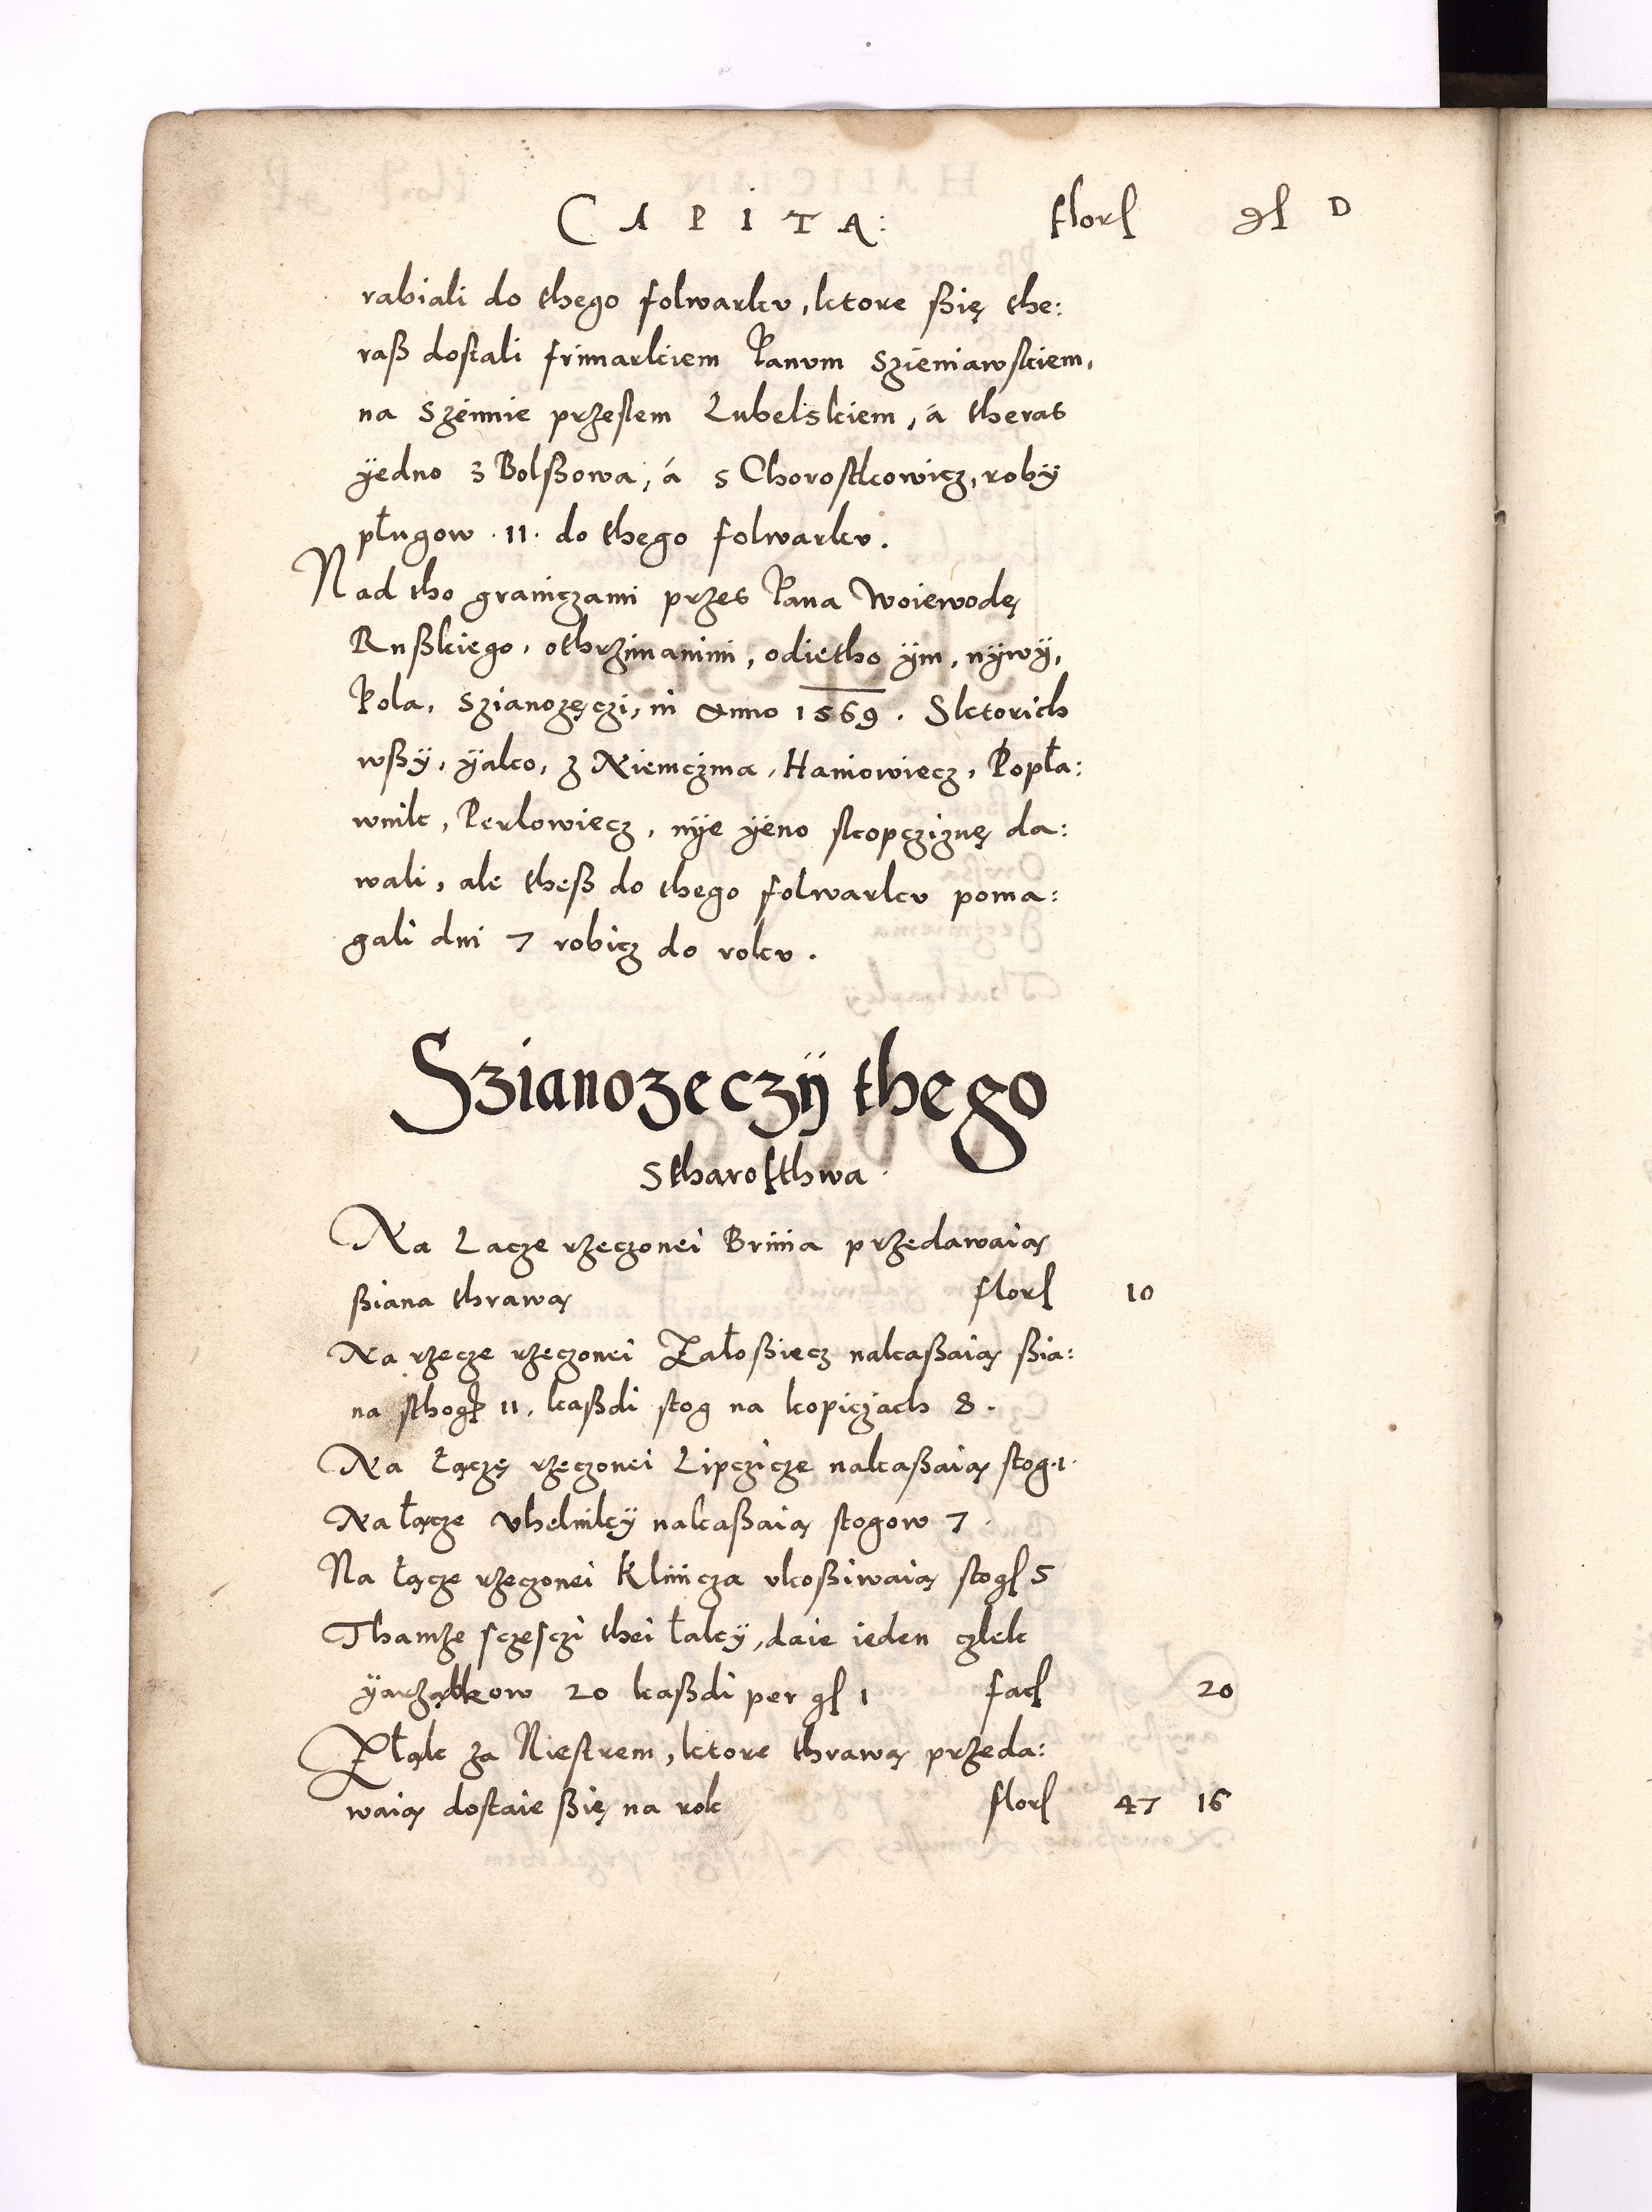 CAPITA: florſ gſ D
rabiali do thego folwarku, ktore ßię the:
raß dostali frimarkiem Panom Szieniawskiem,
na Szeimie przeslem Lubelskiem, á theras
ÿedno z Bolßowa, á s Chorostkowicz, robÿ
pługow .11. do thego folwarku.
Nad tho graniczami przes Pana Woiewodę
Rußkiego, othrzimanimi, odiętho ÿm, nÿwÿ,
Pola, Szianozęczi, in Anno 1569. Sktorich
wßÿ, ÿako, z Niemczina, Haniowiecz, Popła:
wnik, Perlowiecz, nÿe ÿeno skopcziznę da:
wali, ale theß do thego folwarku poma:
gali dni 7 robicz do roku.
Szianozeczÿ thego
Stharosthwa.
Na Lacze rzeczonei Briiia przedawaią
ßiana thrawą florſ 10
Na rzecze rzeczonei Załoßiecz nakaßaią ßia:
na sthogſ 11, kaßdi stog na kopiczach 8.
Na łączę rzeczonei Lipczicze nakaßaią stog .1.
Na łącze Uhelnikÿ nakaßaią stogow 7.
Na łącze rzeczonei Kliiicza ukoßiwaią stogſ 5
Thamże sczesczi thei łakÿ, daie ieden czlek
ÿarząbkow 20 kaßdi per gſ 1 facſ 20
Złąk za Niestrem, ktore thrawą przeda:
waią dostaie ßię na rok florſ 47 16